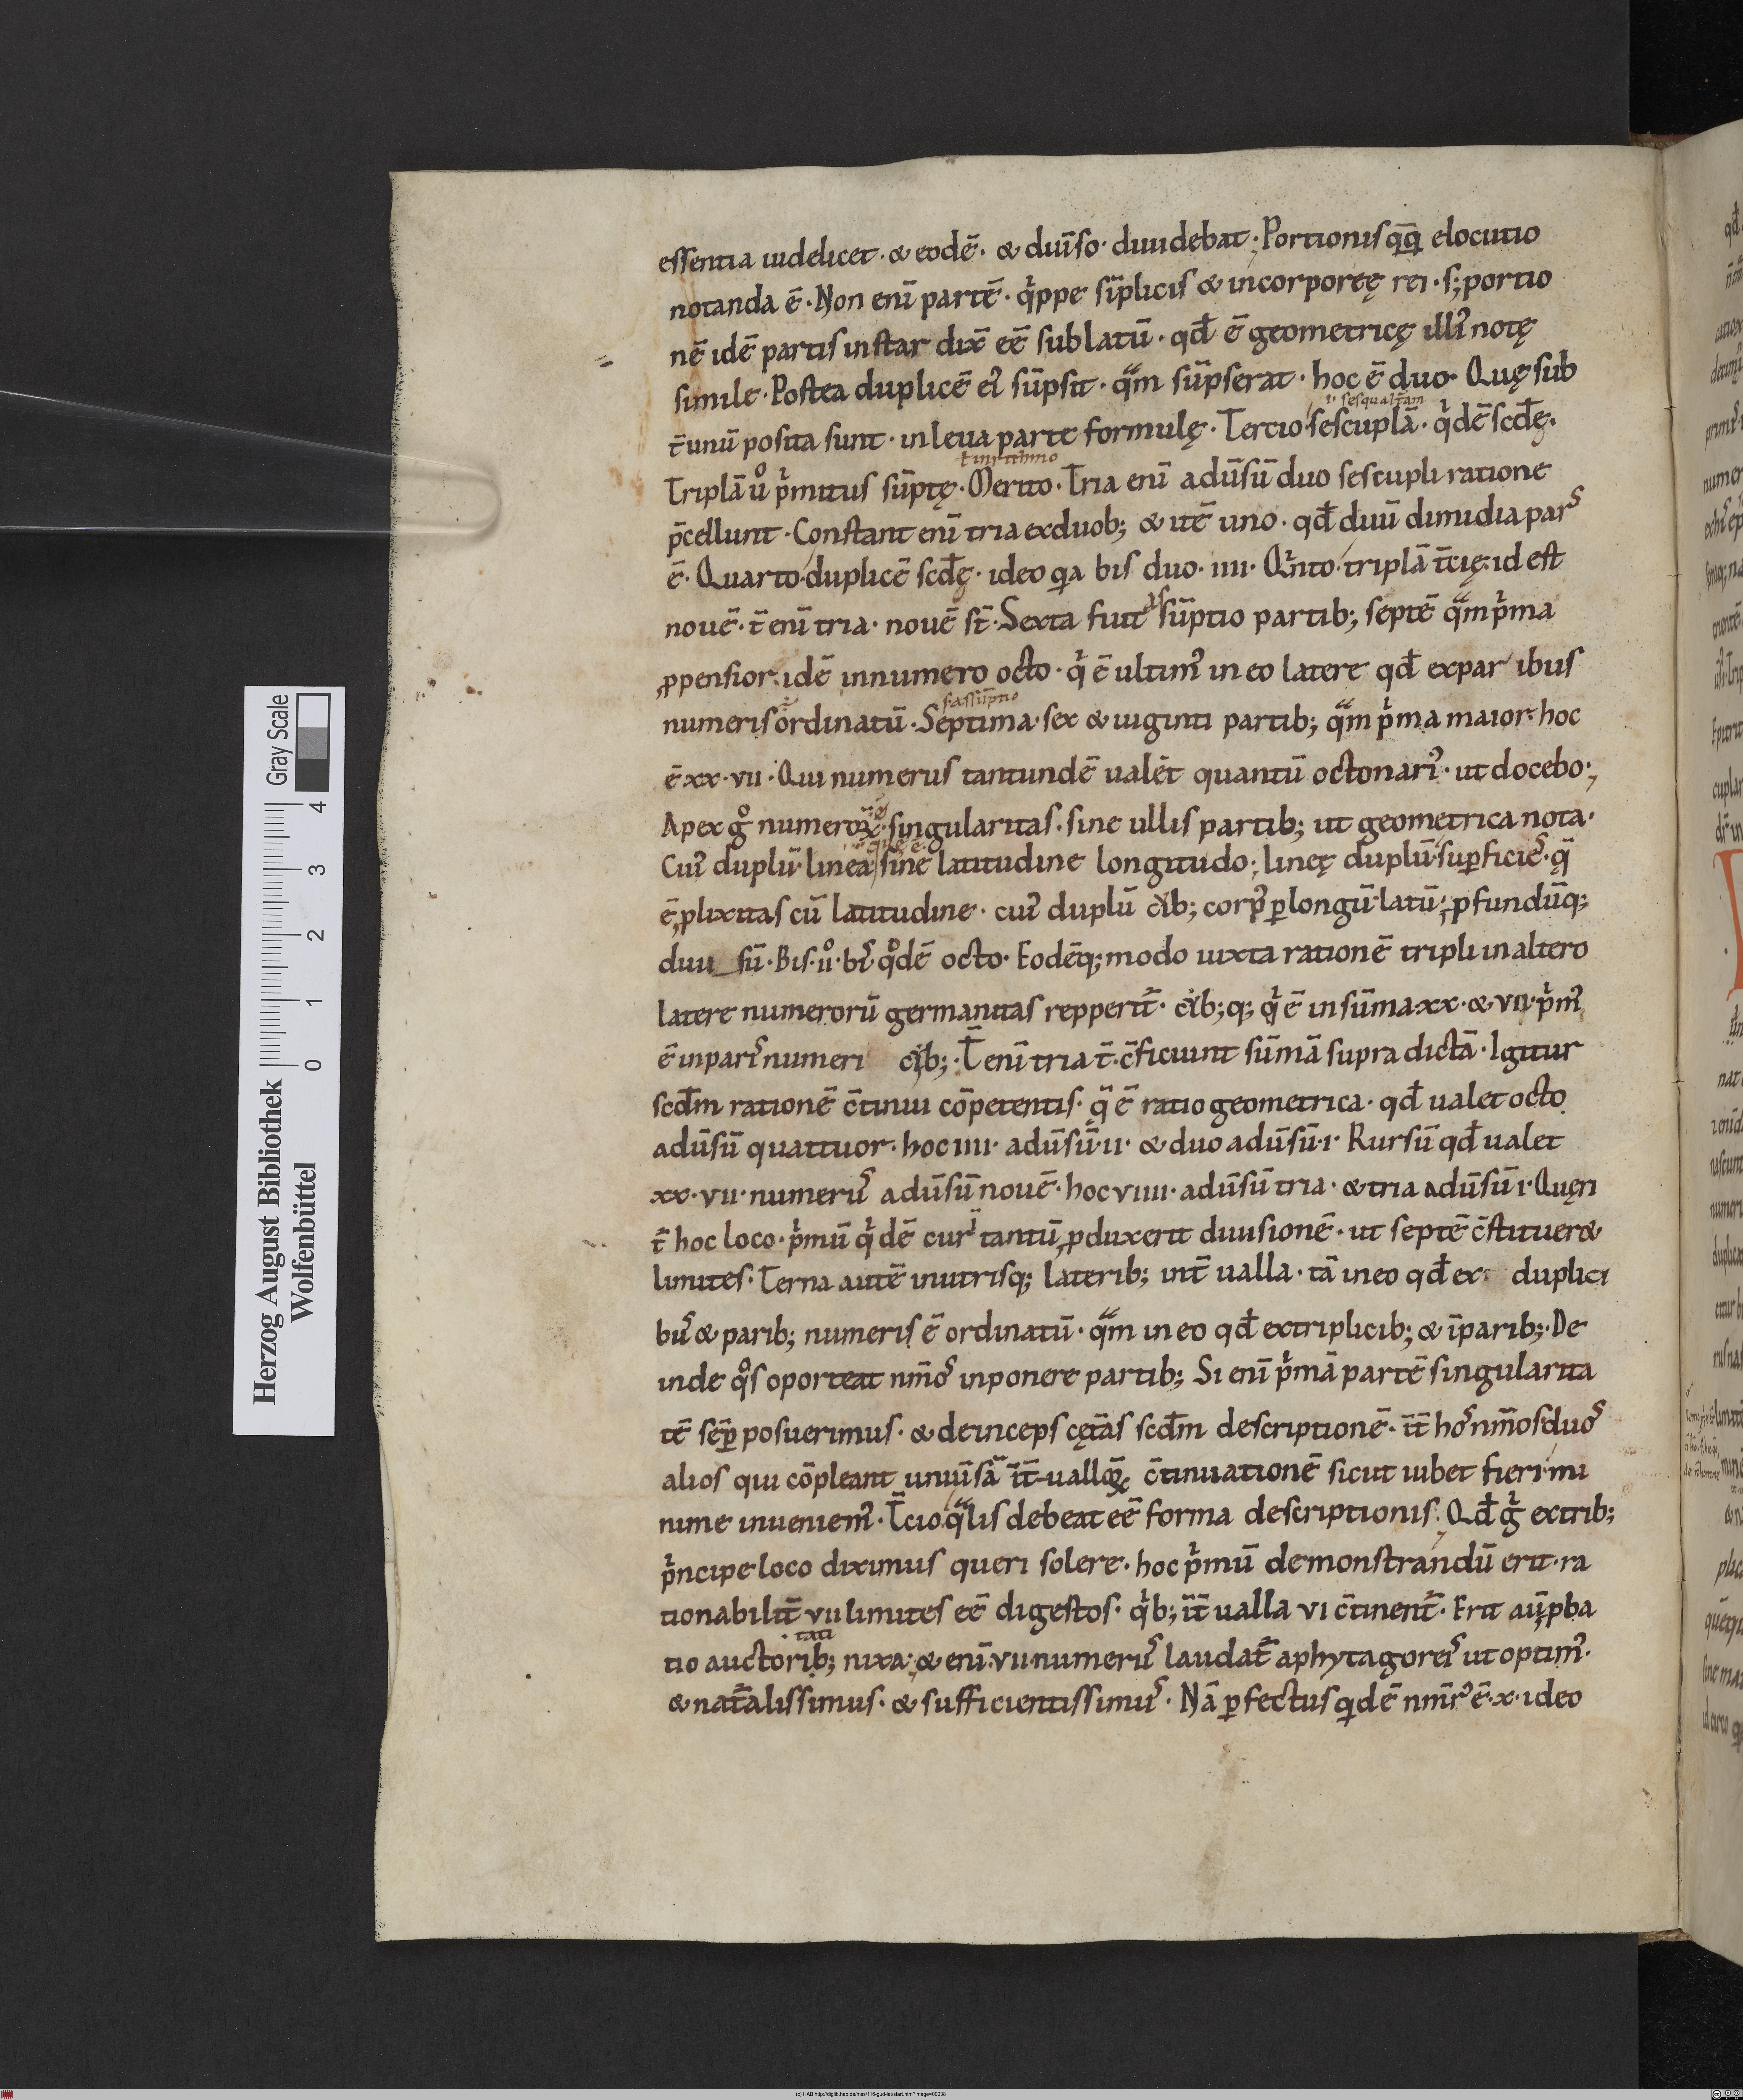 essentia uidelicet · & eodē · & diuīso · diuidebat ; Portionisq̄q̄ elocutio
notanda ē · Non enī partē · qͥppe sīplicis & incorporeę rei · s; portio
nē idē partis instar dix̄ eē sublatū · qd̄ ē geometricę illiꝰ notę
simile · Postea duplicē eiꝰ sūpsit · qͣm sūpserat · hoc ē duo · Quę sub
ı · sesqualt̄am
t̄ unū posita sunt · in leua parte formulę · Tercio sescuplā · qͥdē scd̄ę ·
ł in rithmo
Triplā uͦ pͥmitus sūptę · Merito · Tria enī aduͤsū duo sescupli ratione
p̄cellunt · Constant enī tria ex duob; & itē uno · qd̄ duū dimidia pars
ē · Quarto duplicē scd̄ę · ideo qa bis duo · iiii · Qͥnto · triplā t̄cię · id est
nouē · t̄ enī tria · nouē st̄ · Sexta fuit as sūptio partib; septē qͣm pͥma
ꝓpensior · idē in numero octo · qͥ ē ultimꝰ in eo latere qd̄ ex par ibus
s · assūptio
numeris ordinatū · Septima · sex & uiginti partib; qͣm pͥma maior · hoc
ē xx · vii · Qui numerus tantundē ualēt quantū octonariꝰ · ut docebo ;
Apex gͦ numeroꝝ · singularitas · sine ullis partib; ut geometrica nota ·
que ē
Cuiꝰ duplū · linea sine latitudine longitudo ; lineę duplū · suꝑficiē · q̄
ē ꝓlixitas cū latitudine · cuiꝰ duplū cib; corpꝰ ꝑ longū latū · ꝓfundūq;
diui sū · Bis · uͦ · bꝰ qͦdē octo · Eodēq; modo iuxta rationē tripli in altero
latere numerorū germanitas repperit̄ · cib; q; qͥ ē in sūma · xx · & vii · pͥmꝰ
ē inparisꝰ numeri cib; · T̄ enī tria t̄ · c̄ficiunt sūmā supra dictā · Igitur
scd̄m rationē c̄tinui cōpetentis · q̄ ē ratio geometrica · qd̄ ualet octo
aduͤsū quattuor · hoc iiii · aduͤsū ii · & duo aduͤsū · i · Rursū qd̄ ualet
xx · vii · numerꝰ aduͤsū nouē · hoc viiii · aduͤsū tria · & tria aduͤsū i · Quęri
t̄ hoc loco · pͥmū qͥdē cur tantū ꝓduxerit diuisionē · ut septē c̄stituer&
limites · Terna autē in utrisq; laterib; int̄ ualla · tā in eo qd̄ ex duplici
bꝰ & parib; numeris ē ordinatū · qͣm in eo qd̄ ex triplicib; & īparib; · De
inde qͦs oporteat nm̄os inponere partib; Si enī pͥmā partē singularita
tē sēꝑ posuerimus · & deinceps cęt̄as scd̄m descriptionē · īt̄ hos nm̄os duos
alios qui cōpleant uniuͤsā īt̄ualloꝝ c̄tinuationē sicut iubet fieri · mi
nime inueniemꝰ · T̄cio qͣlis debeat eē forma descriptionis · Qd̄ gͥ ex trib;
pͥncipe loco diximus queri solere · hoc pͥmū demonstrandū erit · ra
tionabilit̄ vii limites eē digestos · qͥb; īt̄ualla vi c̄tinent̄ · Erit aū ꝓba
tati
tio auctorib; nixa · & enī · vii · numerꝰ laudat̄ a phytagoreis ut optimꝰ ·
& nat̄alissimus · & sufficientissimꝰ · Nā ꝑfectus qidē nm̄rꝰ ē · x · ideo
Herzog August Bibliothek
Wolfenbüttel
Gray Scale
0 1 2 3 4
(c) HAB http://diglib.hab.de/mss/116-gud-lat/start.htm?image=00038